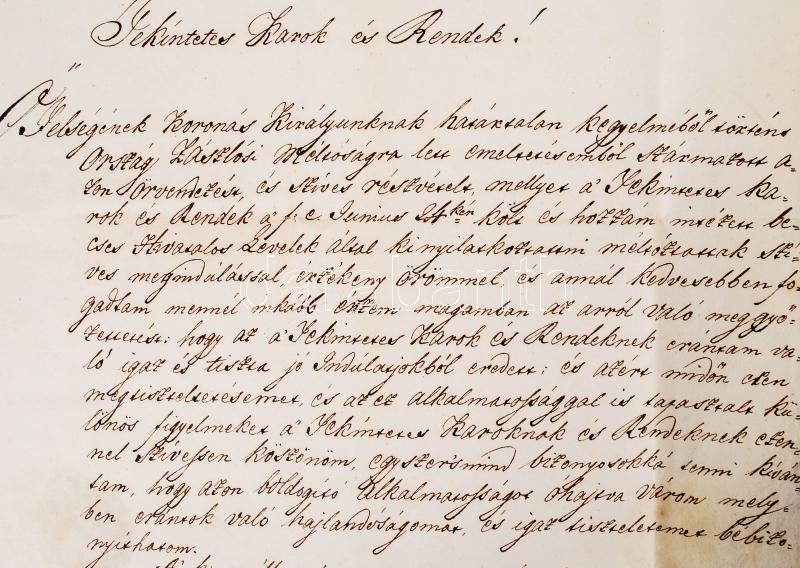 Tekintetes Karok és Rendek!
Ő Felségének Koronás Királyunknak határtalan kegyelméből történt
Ország Zászlósi Méltóságra lett emeltetésemből származott a-
zon Örvendezést, és szíves részvételt, mellyet a' Tekintetes Ka-
rok és Rendek a' f. e. Junius 24kén költ és hozzám intézett be-
cses Hivatalos Levelek által kinyilatkoztattni méltóztattak szí-
ves megindulással, értékeny örömmel, és annál kedvesebben fo-
gadtam mennél inkább értem magamban az arról való meggyő-
zettetést: hogy az a' Tekintetes Karok és Rendeknek erántam va-
ló igaz és tiszta jó Indúlatjokból eredett; és azért midőn ezen
megtiszteltetésemet, és az ez alkalmatossággal is tapasztalt kü-
lönös figyelmeket a' Tekintetes Karoknak és Rendeknek ezen-
nel szívessen köszönöm, egyszersmind bizonyosokká tenni kíván-
tam, hogy azon boldogító alkalmatosságot óhajtva várom mely-
ben erántok való hajlandóságomat, és igaz tiszteletemet bébizo-
nyíthatom.
darabanth